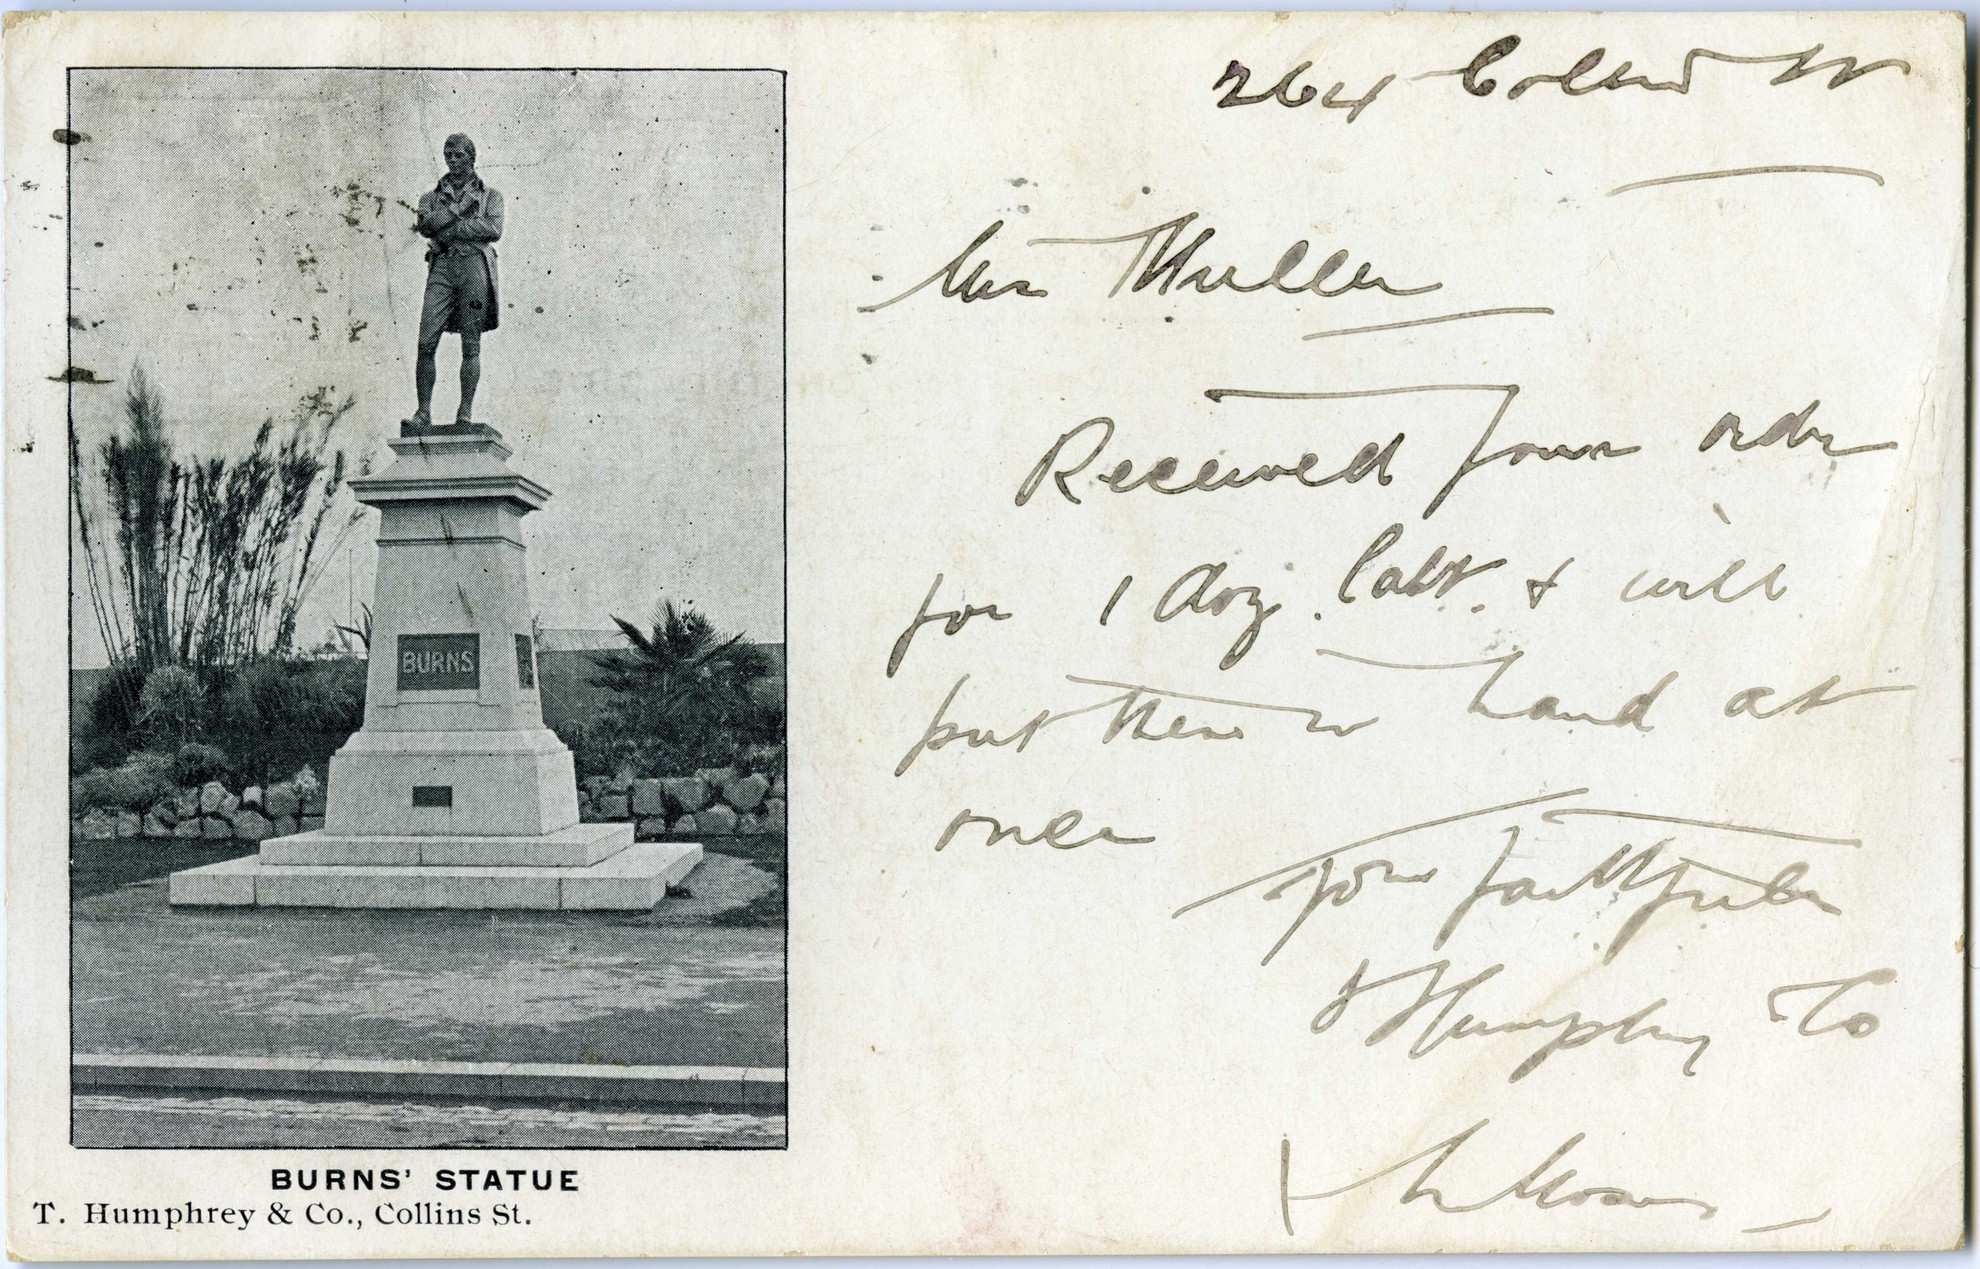 BURNS
BURNS' STATUE
T. Humphrey & Co., Collins St.
264 Collins St
Mrs Muller
Received your order
for 1 doz. Cabt. & will
put them in hand at
once
Yours faithfully
T Humphrey & Co